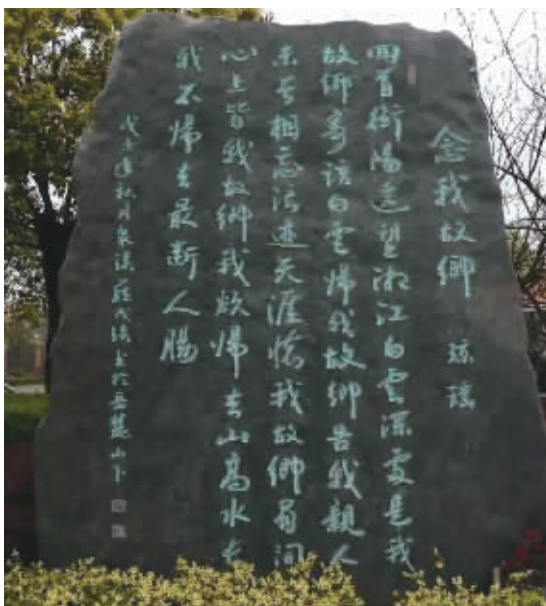 念我故鄉 琼瑤
回首衡陽遙望湘江白雲深處是我
故鄉寄語白雲歸我故鄉告我親人
未相忘浪迹天涯憶我故鄉眉間
心上皆我故鄉我欲歸去山高水長
我不歸去最斷人腸
戊子年秋月書於岳麓山下